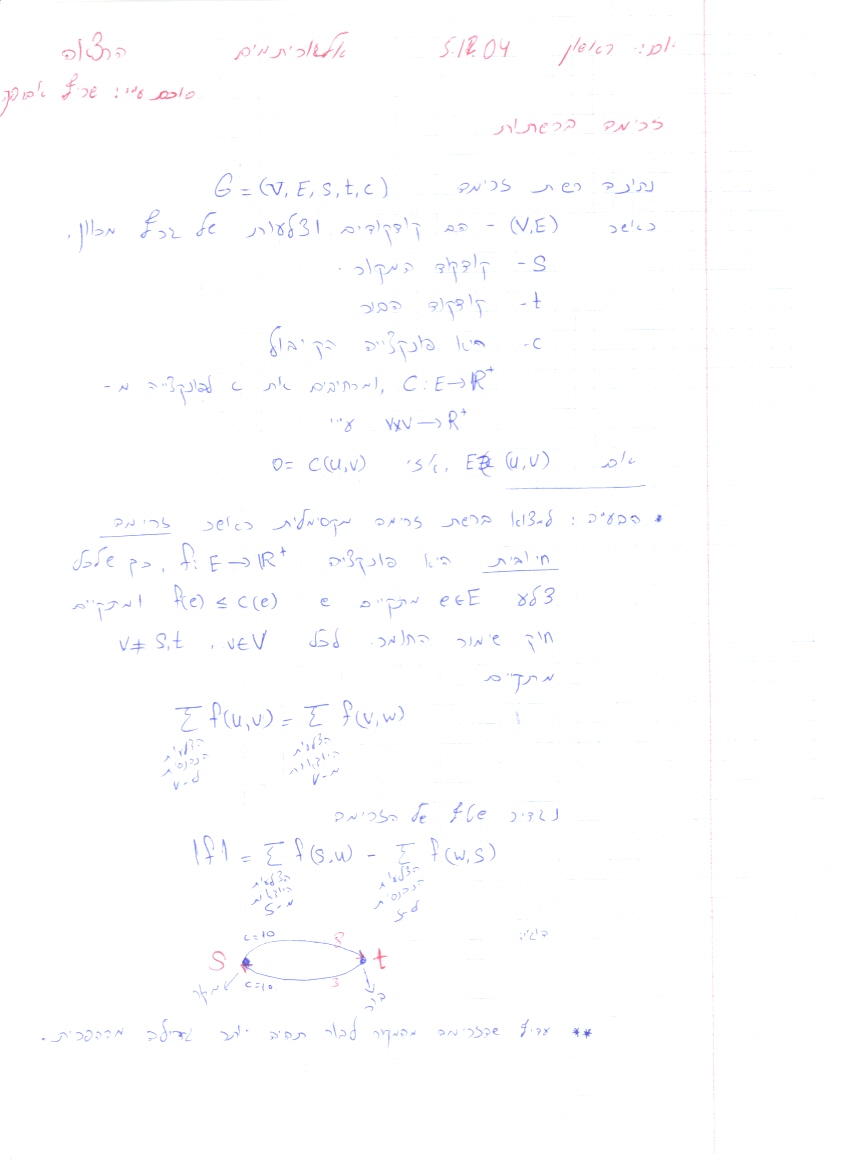 יום: ראשון 5.12.04 אלגוריתמים הרצאה
סוכם ע"י: שריף
זרימה ברשתות
נתונה רשת זרימה G = (V, E, s, t, c)
כאשר (V,E) - הם קודקודים וצלעות של גרף מכוון.
S - קודקוד המקור.
t - קודקוד הבור
c - היא פונקצייה הקיבול
C: E→ℝ⁺, ומרחיבים את c לפונקצייה מ-
V×V→R⁺ ע"י
אם (u,v) ∉ E, אזי c(u,v) = 0
* הבעיה: למצוא ברשת זרימה מקסימלית כאשר זרימה
חיובית היא פונקציה f: E→ℝ⁺, כך שלכל
צלע e∈E מתקיים f(e) ≤ c(e) ומתקיים
חוק שימור החומר. לכל v∈V, v≠s,t
מתקיים
Σ f(u,v) = Σ f(v,w)
הצלעות הנכנסות ל-v הצלעות היוצאות מ-v
נגדיר שטף של הזרימה
|f| = Σ f(s,u) - Σ f(w,s)
הצלעות היוצאות מ-S הצלעות הנכנסות ל-S
c=10 8
S t
c=10 3
מקור בור
** עדיף שהזרימה מהמקור לבור תהיה יותר גדולה מההפכית.